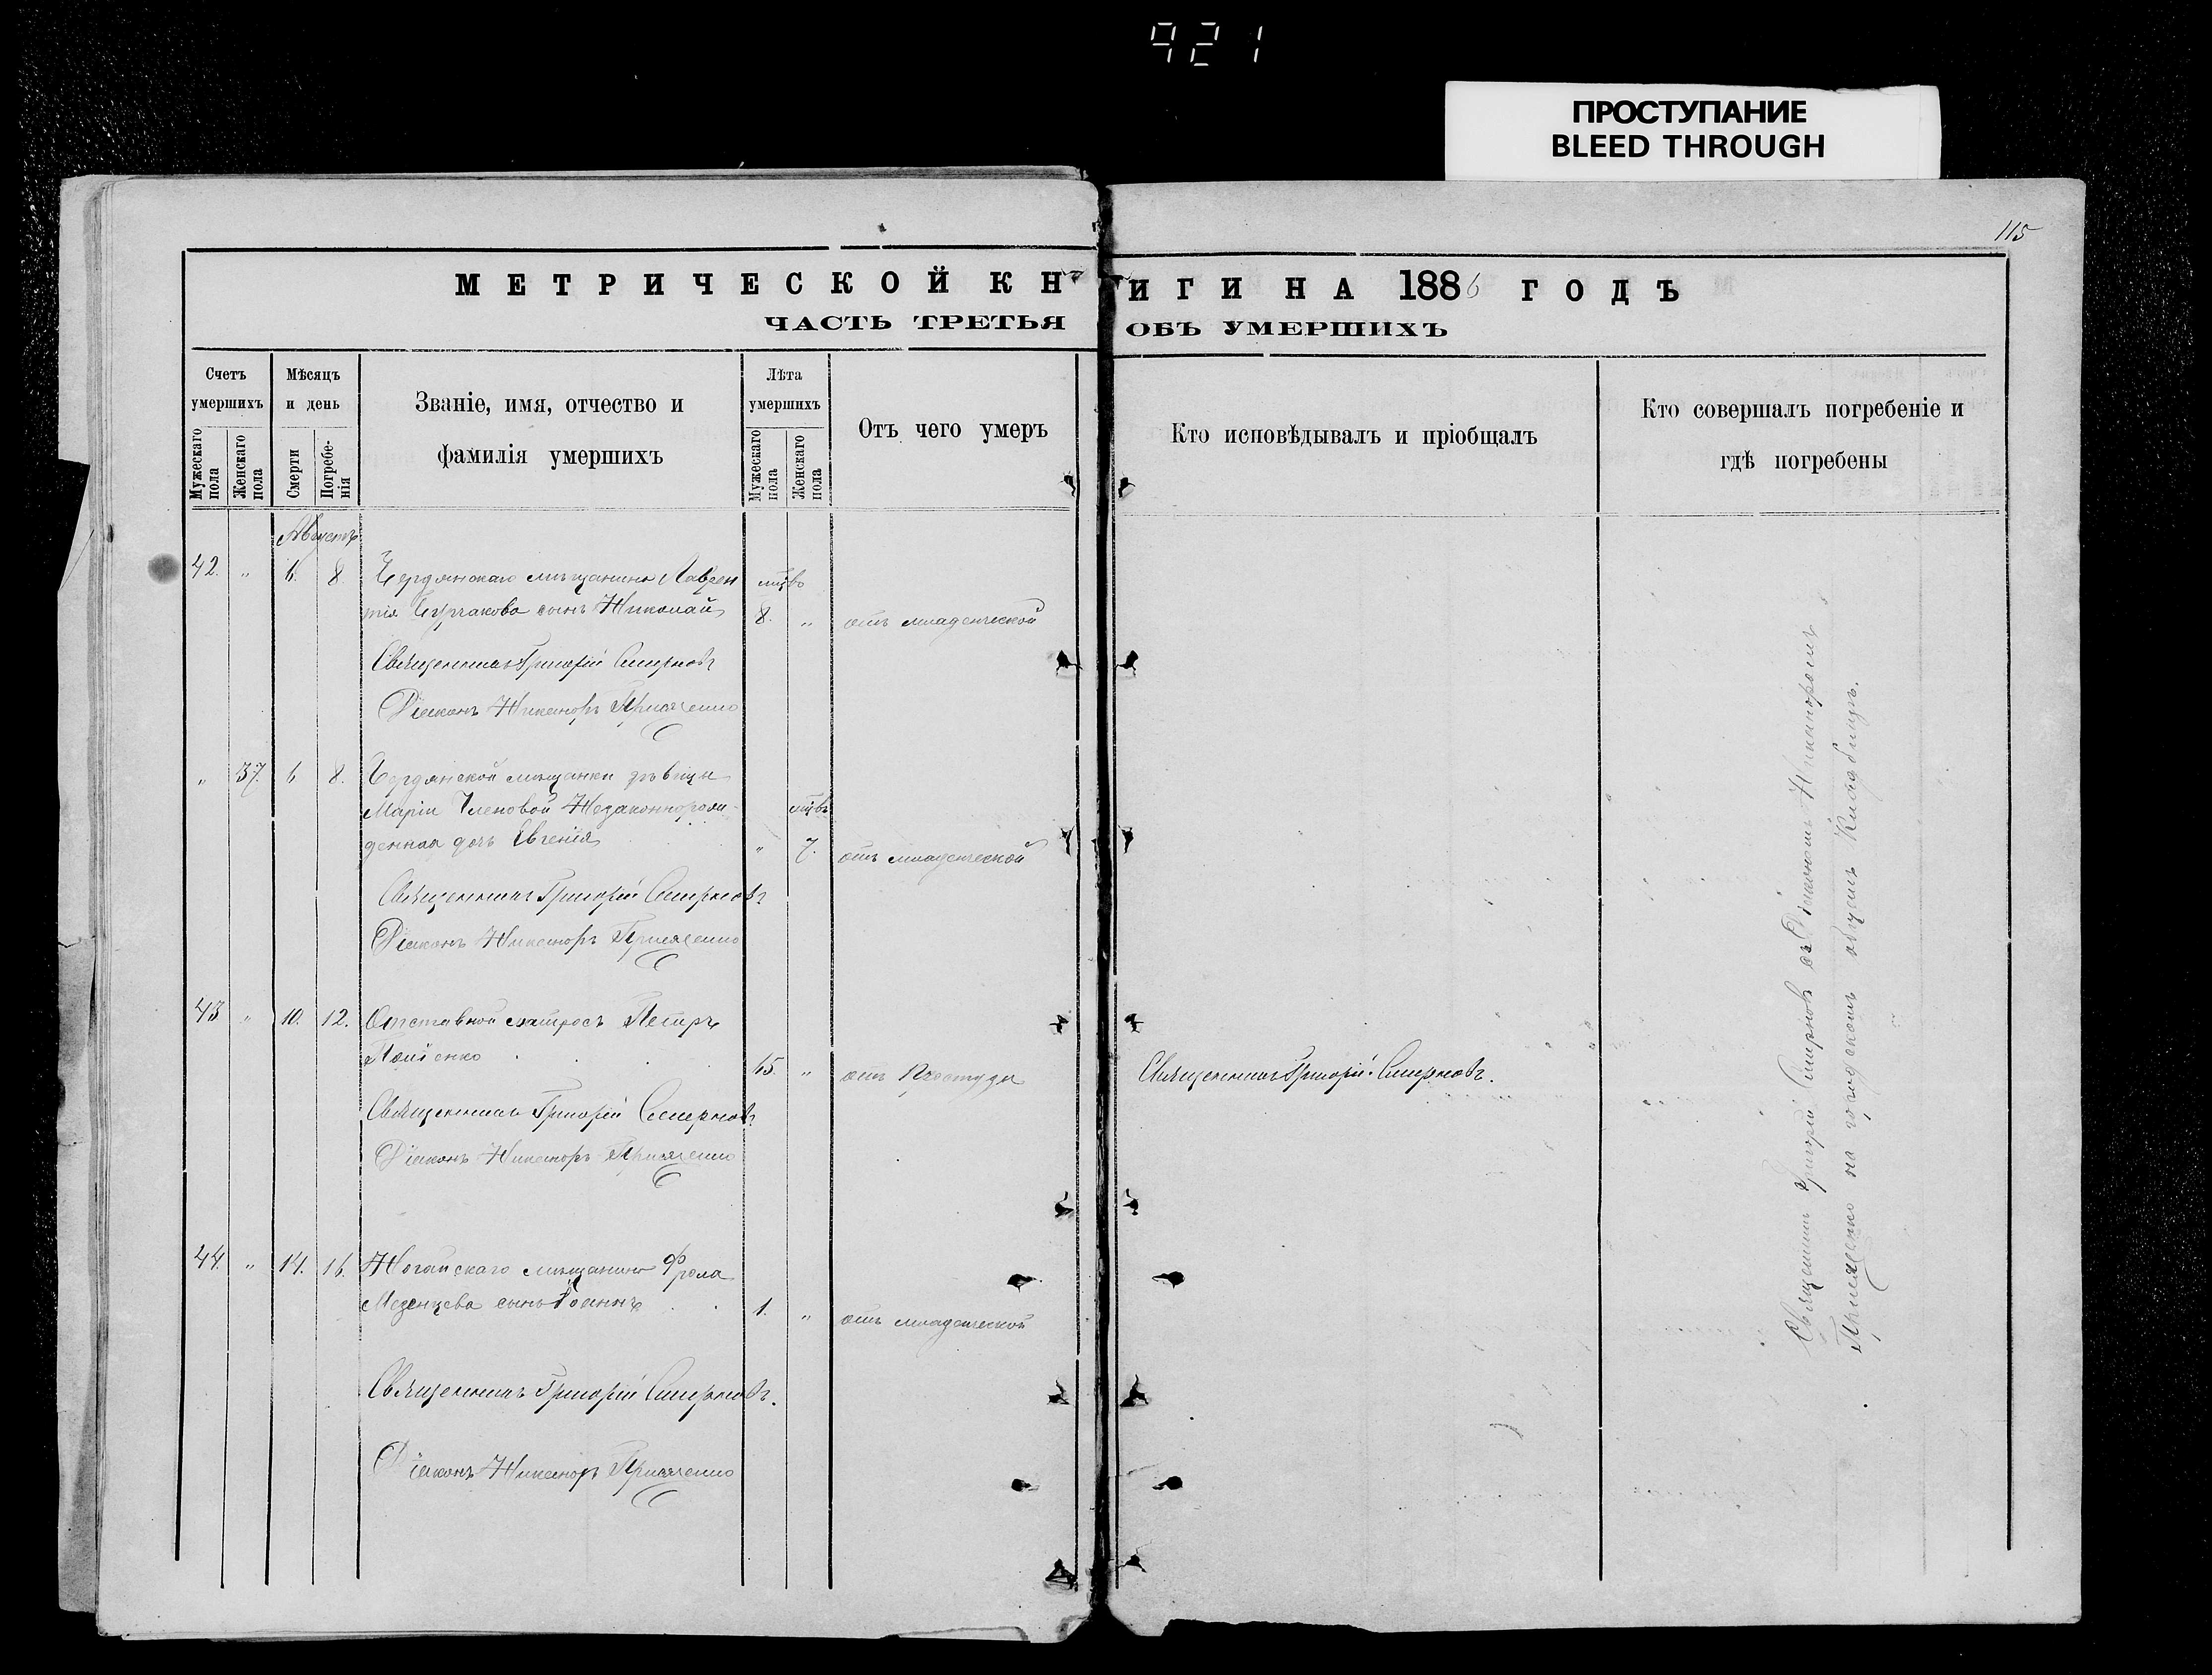 921
ПРОСТУПАНИЕ
BLEED THROUGH
115
МЕТРИЧЕСКОЙ КНИГИ НА 1886 ГОДЪ
ЧАСТЬ ТРЕТЬЯ ОБЪ УМЕРШИХЪ
Счетъ умершихъ
Мужескаго пола
Женскаго пола
Мѣсяцъ и день
Смерти
Погребе-нія
Званіе, имя, отчество и
фамилія умершихъ
Лѣта умершихъ
Мужескаго пола
Женскаго пола
Отъ чего умеръ
Кто исповѣдывалъ и пріобщалъ
Кто совершалъ погребеніе и
гдѣ погребены
Августъ
42. " 6. 8. Бердянскаго мѣщанина Лаврен
мцвъ
тія сынъ Николай 8. " отъ младенческой
Священникъ Григорій Смирновъ
Діаконъ Никаноръ
" 37. 6 8. Бердянской мѣщанки дѣвицы
Маріи Незаконнорож- мцвъ
денная дочь Евгенія " 7. отъ младенческой
Священникъ Григорій Смирновъ
Діаконъ Никаноръ
43 " 10. 12. Отставной матросъ Петръ
65 " отъ Простуды Священникъ Григорій Смирновъ.
Священникъ Григорій Смирновъ
Діаконъ Никаноръ
44. " 14. 16. Ногайскаго мѣщанина Фрола
Мезенцева сынъ Іоаннъ 1. " отъ младенческой
Священникъ Григорій Смирновъ.
Діаконъ Никаноръ
Священникъ Григорій Смирновъ съ Діакономъ Никаноромъ
на городскомъ общемъ Кладбищѣ.